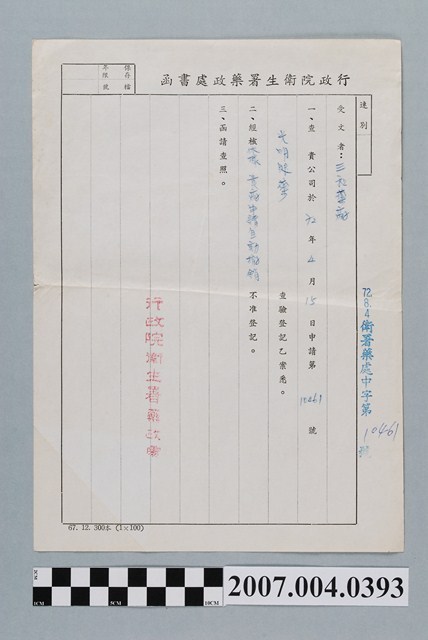 行政院衛生署藥政處書函
保存
年限
檔號
速別
受文者：三和藥廠
72.8.4衛署藥處中字第10461號
一、查 貴公司於72年4月15日申請第10461號
查驗登記乙案悉。
二、經核
不准登記。
三、函請查照。
行政院衛生署藥政處
67.12.300本(1×100)
1CM
5CM
10CM
2007.004.0393